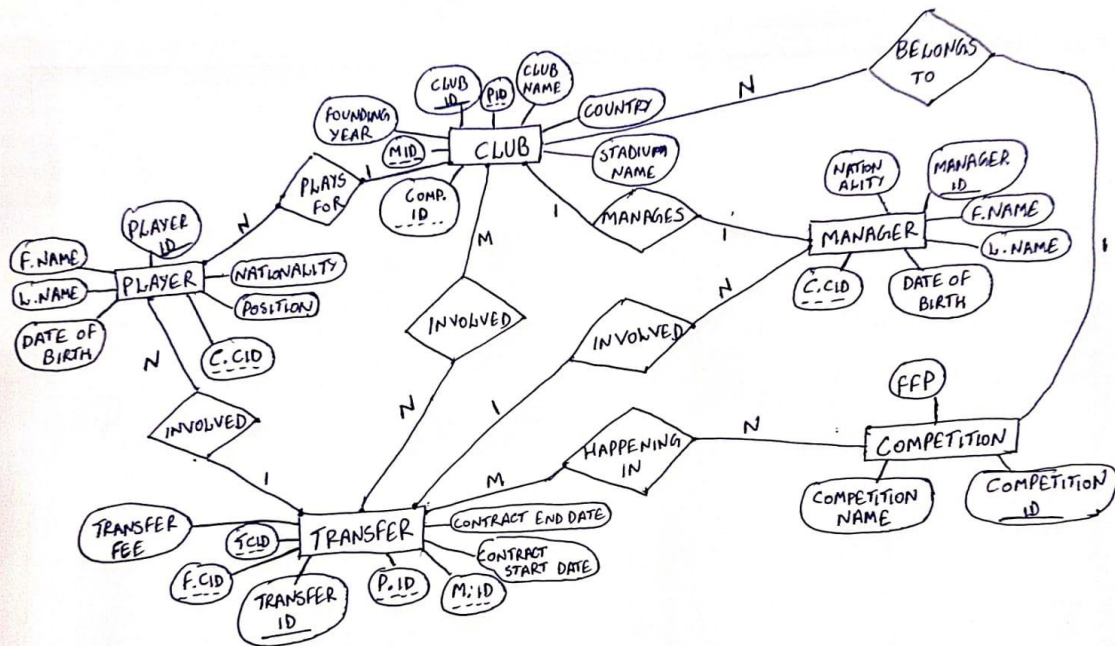 BELONGS
TO
N
1
CLUB
ID
PID
CLUB
NAME
FOUNDING
YEAR
COUNTRY
MID
CLUB
STADIUM
NAME
COMP.
ID
PLAYS
FOR
1
N
M
1
MANAGES
1
NATION
ALITY
MANAGER
ID
F.NAME
MANAGER
L.NAME
C.CID
DATE OF
BIRTH
PLAYER
ID
F.NAME
NATIONALITY
PLAYER
L.NAME
POSITION
DATE OF
BIRTH
C.CID
N
INVOLVED
1
INVOLVED
N
INVOLVED
N
1
HAPPENING
IN
M
N
FFP
COMPETITION
COMPETITION
NAME
COMPETITION
ID
TRANSFER
FEE
TCID
TRANSFER
CONTRACT END DATE
CONTRACT
START DATE
F.CID
TRANSFER
ID
P.ID
M.ID